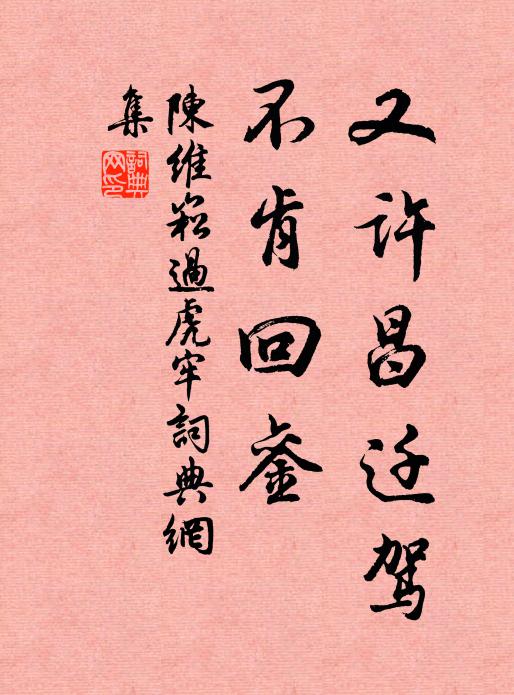 又许昌迁驾
不肯回銮
陳維崧過虎牢詞典網
集
詞典
网印